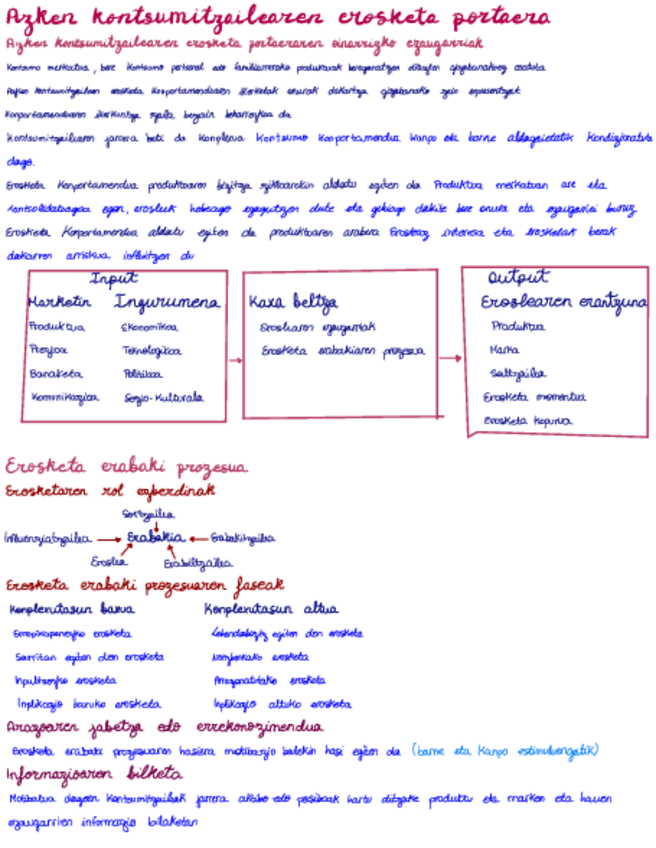 Azken kontsumitzailearen erosketa portaera
Azken kontsumitzailearen erosketa portaeraren oinarrizko ezaugarriak
Kontsumo merkatua, bere kontsumo pertsonal edo familiarrerako produktuak bereganatzen dituzten gizabanakoez osatuta
Azken kontsumitzaileen erosketa konportamenduaren ikerketak
Konportamenduaren ikerkuntza egula bezain beharrezkoa da
Kontsumitzailearen jarrera beti da konplexua Kontsumo konportamendua kanpo eta barne aldagaietatik kondizionatuta
dago.
Erosketa konportamendua produktuaren bizitza zikloarekin aldatu egiten da Produktua merkatuan are eta
kontsolidatuagoa egon, erosleak hobeago ezagutzen dute eta gehiago dakite bere onura eta ezaugarriei buruz
Erosketa konportamendua aldatu egiten da produktuaren arabera Erosteaz interesa eta erosketak berak
dakarren arriskua influitzen du
Input
Marketin Ingurumena
Produktua Ekonomikoa
Prezioa Teknologikoa
Banaketa Politikoa
Komunikazioa Sozio-Kulturala
Kaxa beltza
Eroslearen ezaugarriak
Erosketa erabakiaren prozesua
Output
Eroslearen erantzuna
Produktua
Marka
Saltzailea
Erosketa momentua
Erosketa kopurua
Erosketa erabaki prozesua
Erosketaren rol ezberdinak
Sortzailea
Influentziatzailea Erabakia Erabakitzailea
Eroslea Erabiltzailea
Erosketa erabaki prozesuaren faseak
Konplexutasun baxua Konplexutasun altua
Errepikapenezko erosketa Lehendabiziz egiten den erosketa
Sarritan egiten den erosketa Noizbehinkako erosketa
Inpultsozko erosketa Arrazonatutako erosketa
Inplikazio baxuko erosketa Inplikazio altuko erosketa
Arazoaren jabetza edo errekonozimendua
Erosketa erabaki prozesuaren hasiera motibazio batekin hasi egiten da (barne eta kanpo estimuluengatik)
Informazioaren bilketa
Motibatua dagoen kontsumitzaileak jarrera aktibo edo pasiboak hartu ditzake produktu eta marken eta hauen
ezaugarrien informazio bilaketan